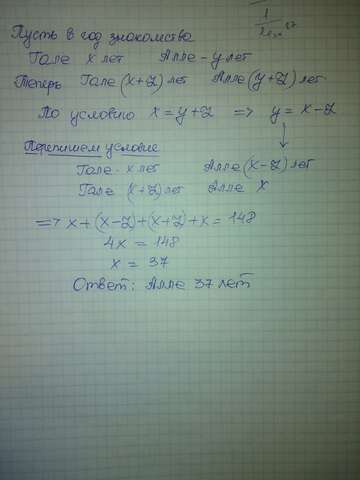 Пусть в год знакомства
Гале x лет Алле - y лет
Теперь Гале (x+z) лет Алле (y+z) лет
По условию x = y+z => y = x-z
Перепишем условие
Гале - x лет Алле (x-z) лет
Гале (x+z) лет Алле x
=> x+(x-z)+(x+z)+x = 148
4x = 148
x = 37
Ответ: Алле 37 лет